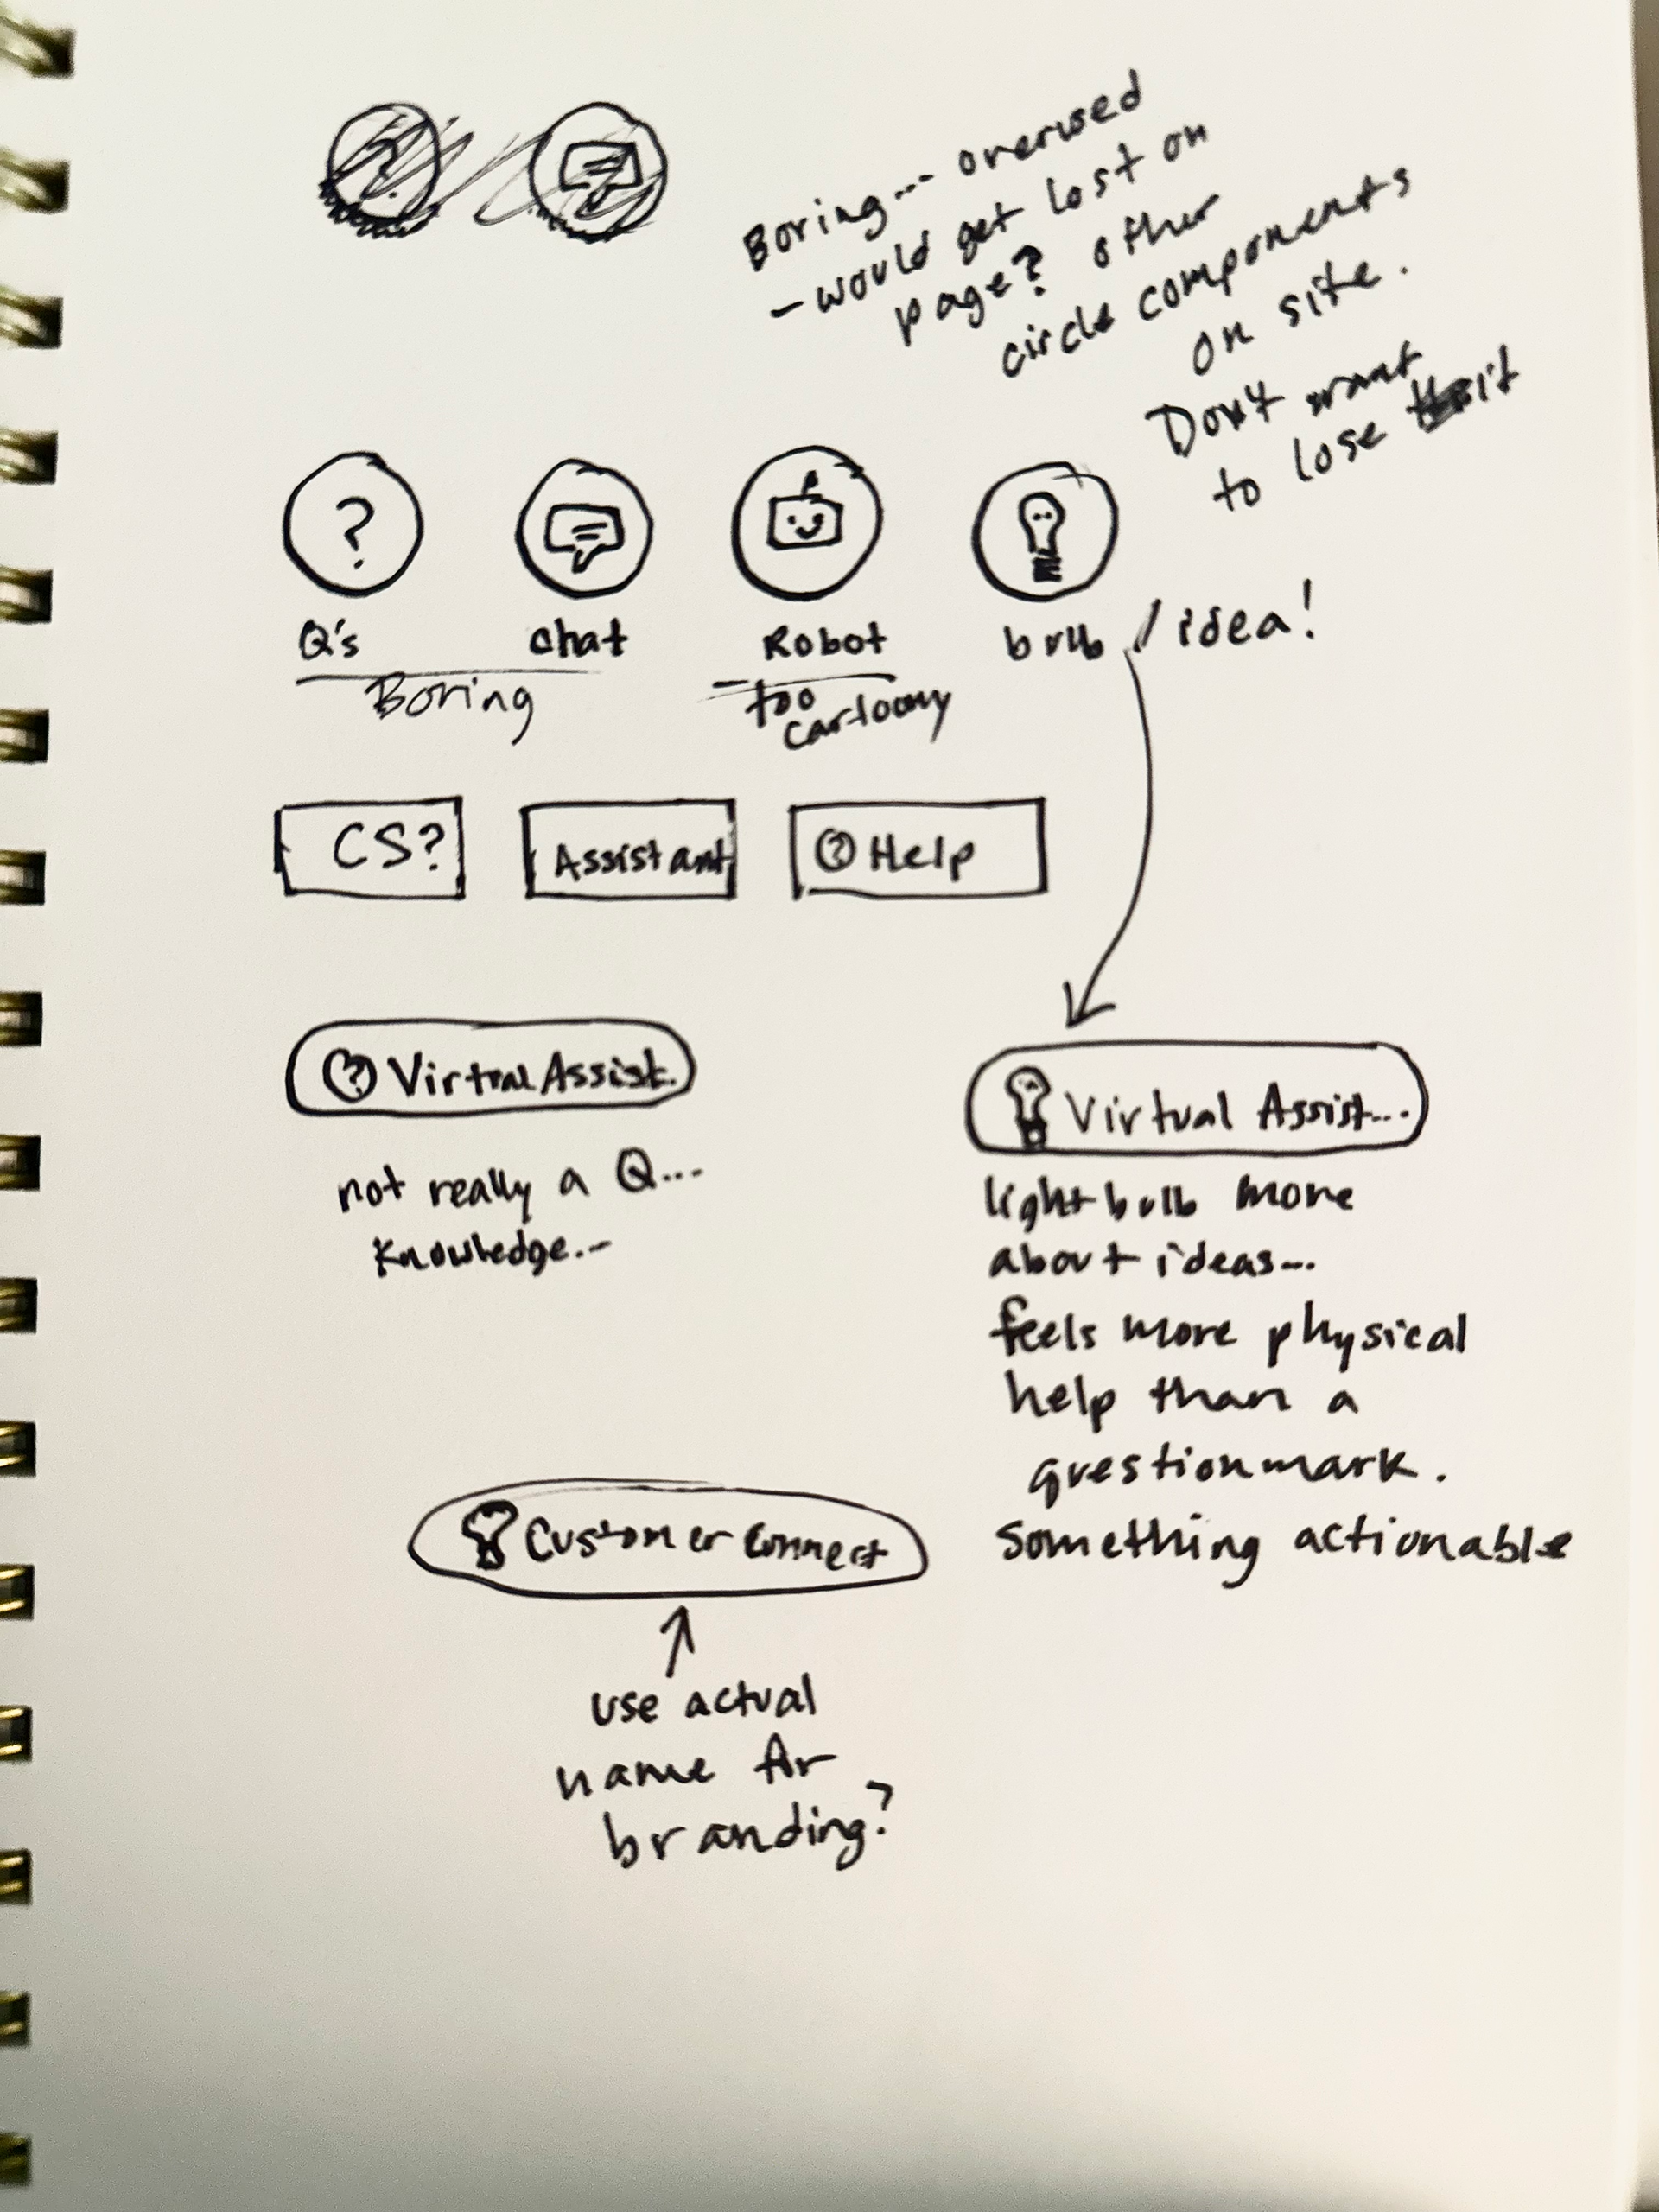 ?
Boring... overused
- would get lost on
page? other
circle components
on site.
Don't want
to lose it
?
Q's
chat
Robot
bulb / idea!
Boring
- too
cartoony
CS?
Assistant
? Help
? Virtual Assist.
not really a Q...
knowledge...
Virtual Assist...
lightbulb more
about ideas...
feels more physical
help than a
questionmark.
something actionable
Customer Connect
use actual
name for
branding?